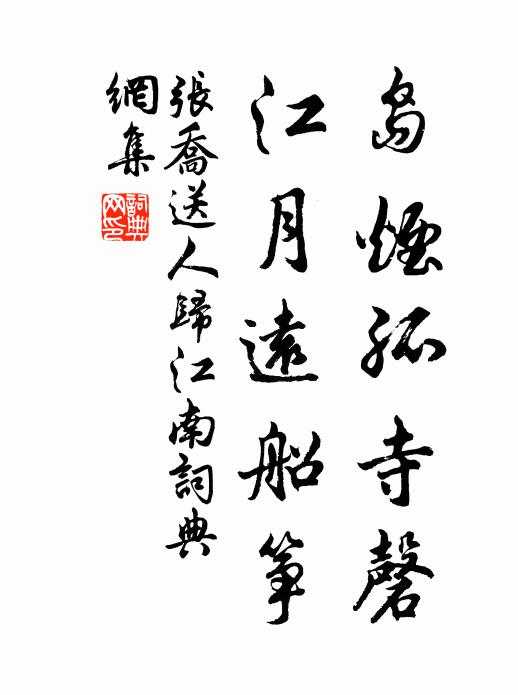 島煙孤寺磬
江月遠船箏
張喬送人歸江南詞典
網集
詞典
网印